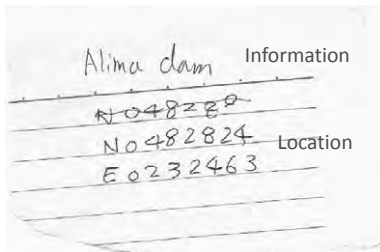 Alima dam
Information
N048220
N0482824
Location
E0232463